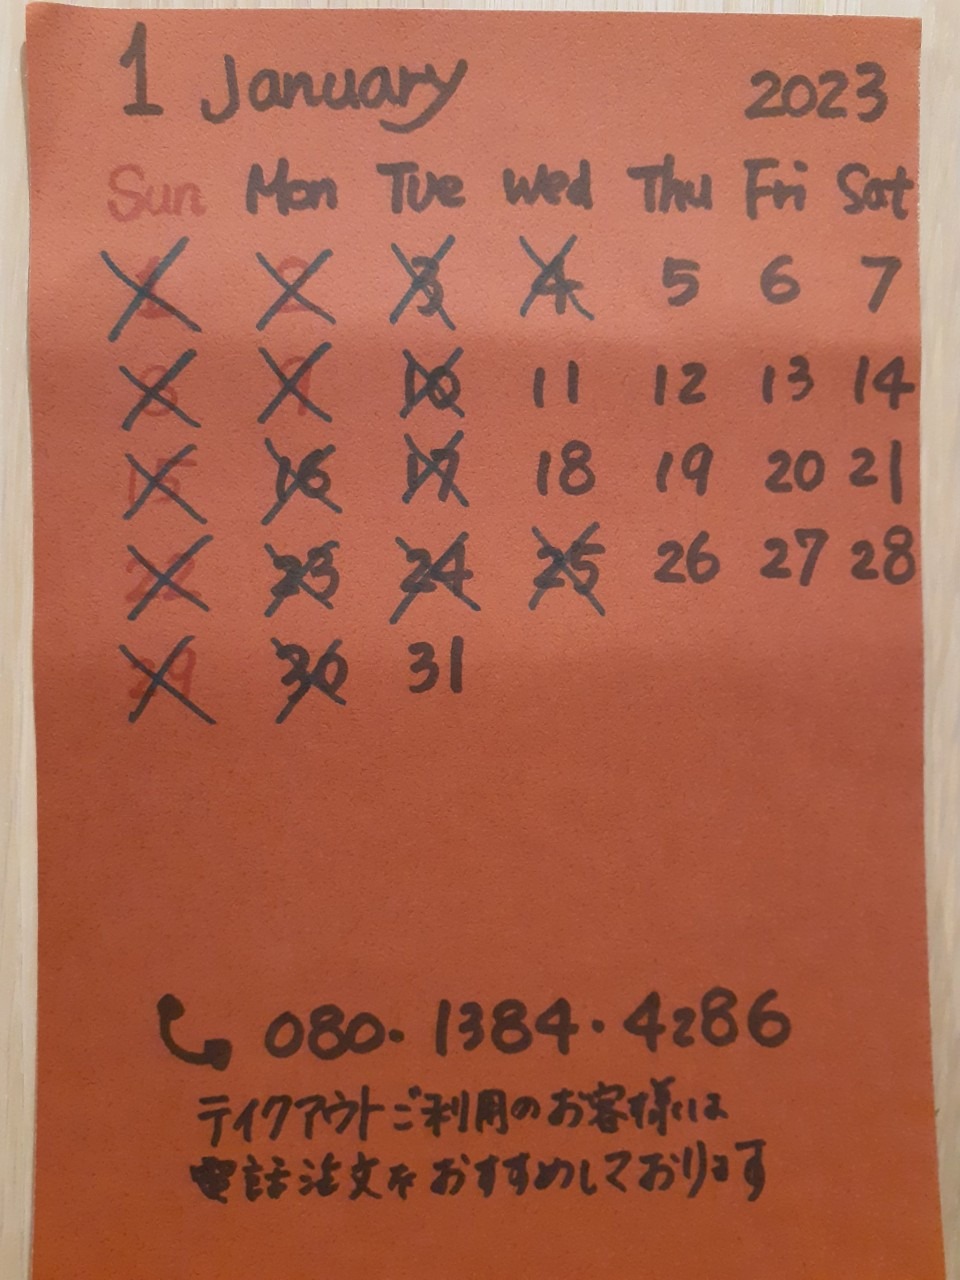 1 January 2023
Sun Mon Tue Wed Thu Fri Sat
1 2 3 4 5 6 7
8 9 10 11 12 13 14
15 16 17 18 19 20 21
22 23 24 25 26 27 28
29 30 31
080・1384・4286
テイクアウトご利用のお客様は
電話注文をおすすめしております